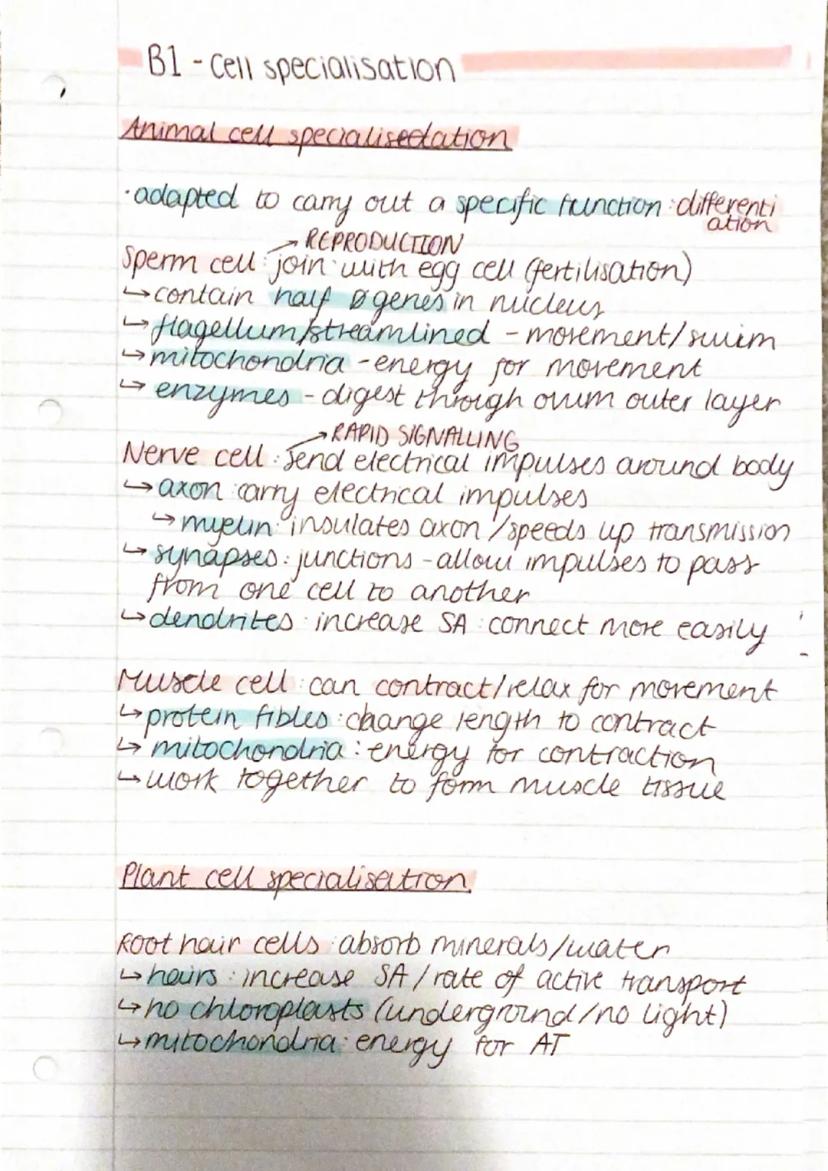 B1 - Cell specialisation
Animal cell specialisedation
· adapted to carry out a specific function : differenti
ation
→ REPRODUCTION
Sperm cell : join with egg cell (fertilisation)
↳ contain half genes in nucleus
↳ flagellum/streamlined - movement/swim
↳ mitochondria - energy for movement
↳ enzymes - digest through ovum outer layer
→ RAPID SIGNALLING
Nerve cell : send electrical impulses around body
↳ axon : carry electrical impulses
↳ myelin : insulates axon / speeds up transmission
↳ synapses : junctions - allow impulses to pass
from one cell to another
↳ dendrites : increase SA : connect more easily
Muscle cell : can contract/relax for movement
↳ protein fibles : change length to contract
↳ mitochondria : energy for contraction
↳ work together to form muscle tissue
Plant cell specialisation
Root hair cells : absorb minerals/water
↳ hairs : increase SA / rate of active transport
↳ no chloroplasts (underground/no light)
↳ mitochondria : energy for AT